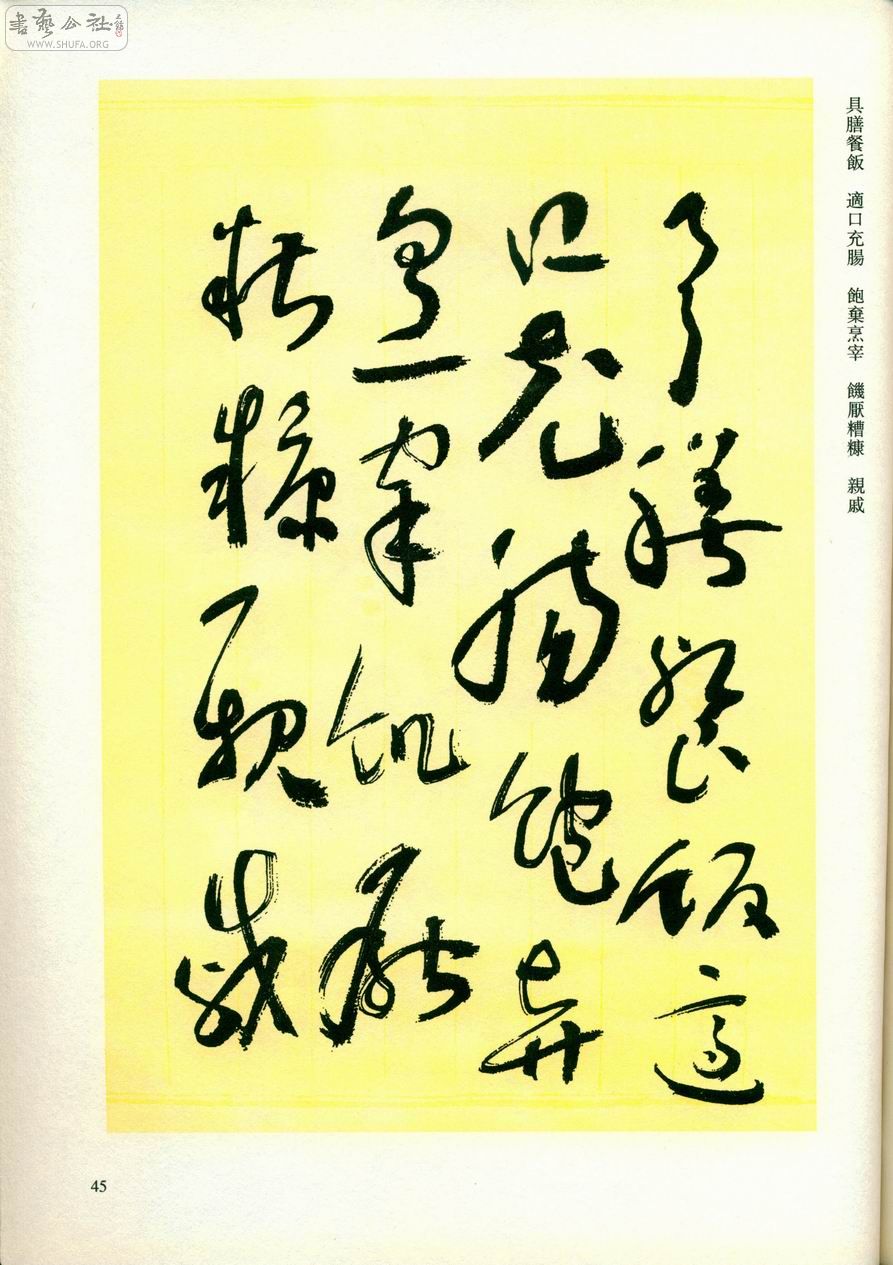 書藝公社
WWW.SHUFA.ORG
具膳餐飯 適口充腸 飽棄烹宰 饑厭糟糠 親戚
具膳餐飯適
口充腸飽棄
烹宰飢厭
糟糠親戚
45